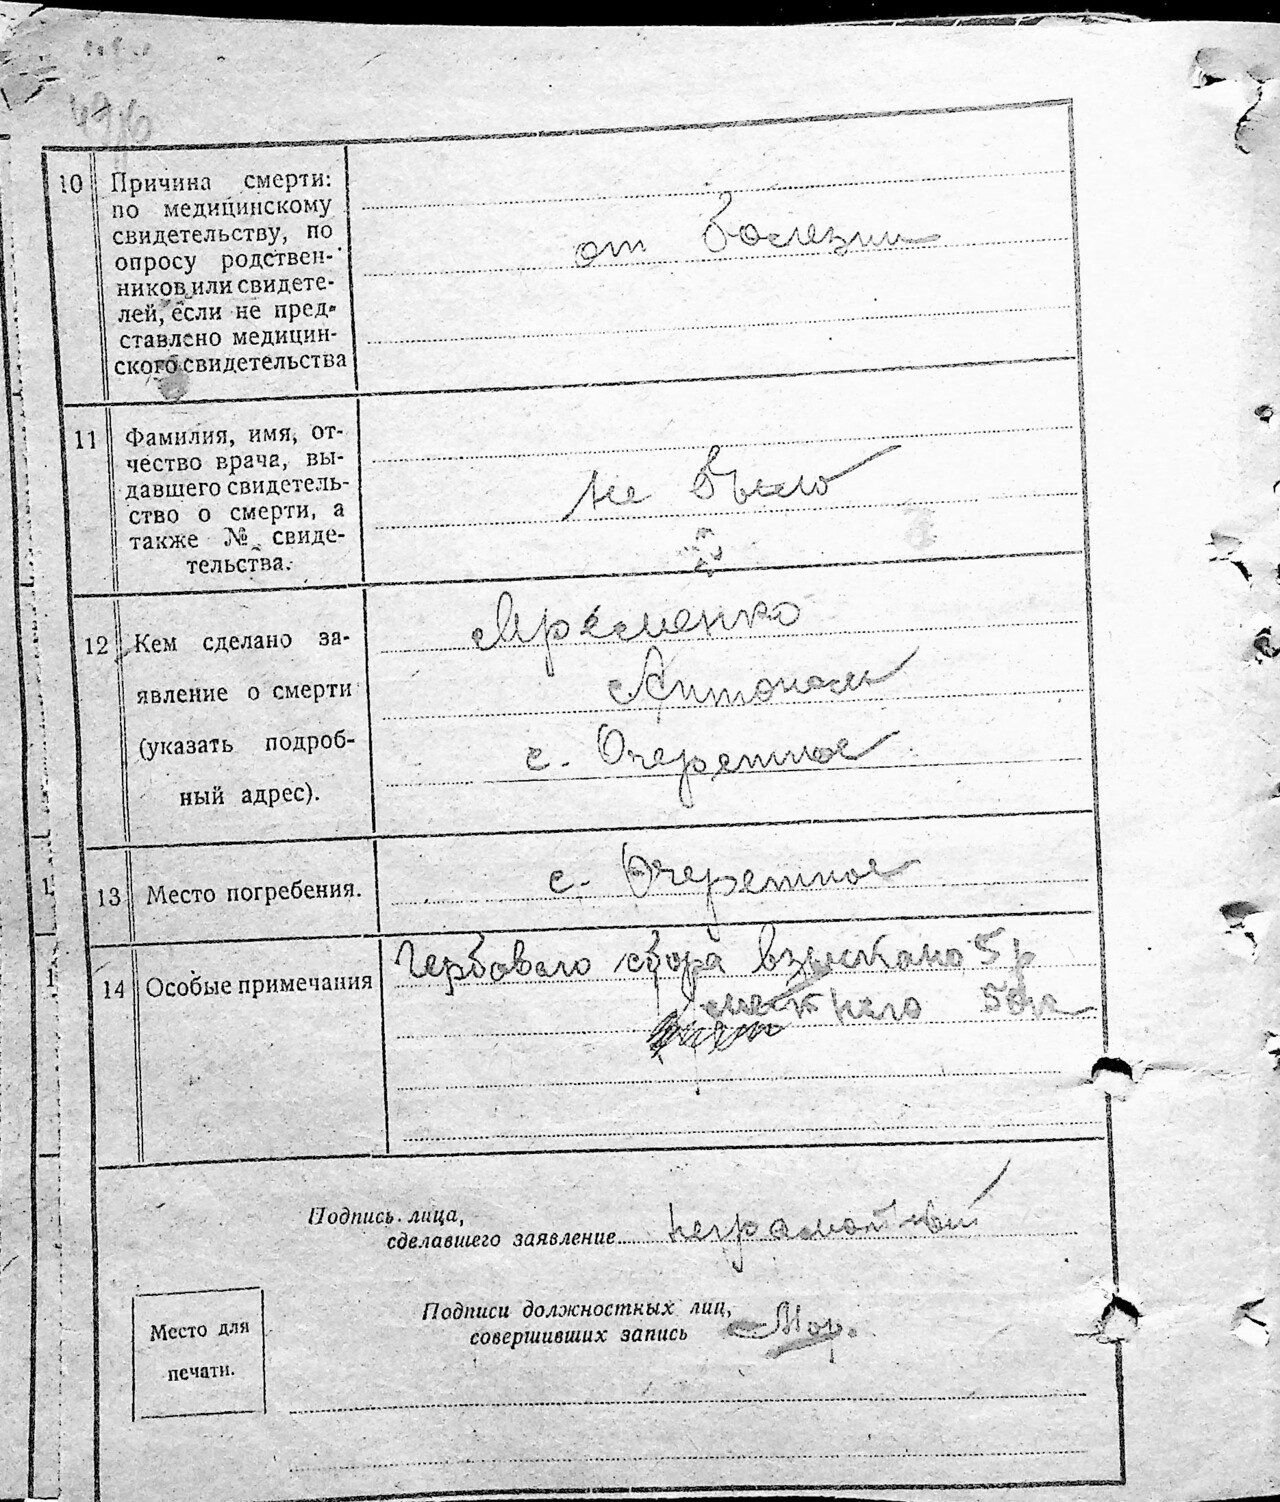 10 Причина смерти:
по медицинскому
свидетельству, по
опросу родствен-
ников или свидете-
лей, если не пред-
ставлено медицин-
ского свидетельства
от болезни
11 Фамилия, имя, от-
чество врача, вы-
давшего свидетель-
ство о смерти, а
также № свиде-
тельства.
не было
12 Кем сделано за-
явление о смерти
(указать подроб-
ный адрес).
Яременко
Антоном
с. Очеретное
13 Место погребения.
с. Очеретное
14 Особые примечания
Гербового сбора взыскано 5 р
местного 50к
Подпись лица,
сделавшего заявление неграмотный
Место для
печати.
Подписи должностных лиц,
совершивших запись